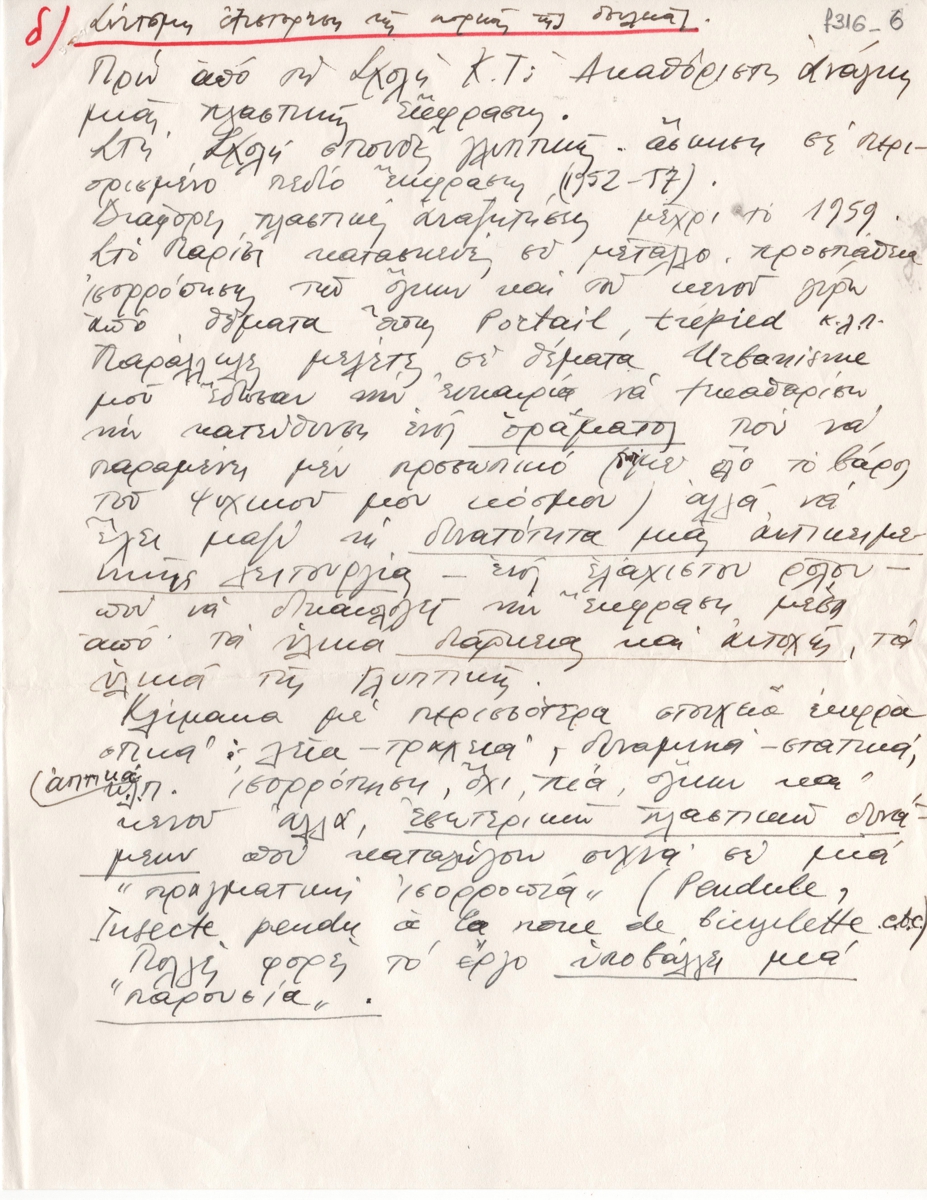 δ) Σύντομη ἐξιστόρηση τῆς πορείας τῆς δουλειᾶς. f316-6
Πρίν ἀπό τή Σχολή Κ.Τ: Ἀκαθόριστη ἀνάγκη
μιᾶς πλαστικῆς ἔκφρασης.
Στή Σχολή σπουδή γλυπτικῆς. ἄσκηση σέ περι-
ορισμένο πεδίο ἔκφρασης (1952-57).
Διάφορες πλαστικές ἀναζητήσεις μέχρι τό 1959.
Στό Παρίσι κατασκευές σέ μέταλλο. προσπάθεια
ἰσορρόπησης τοῦ ὄγκου καί τοῦ κενοῦ γύρω
ἀπό θέματα ὅπως Portail, trépied κ.λ.π.
Παράλληλες μελέτες σέ θέματα Urbanisme
μοῦ ἔδωσαν τήν εὐκαιρία νά ξεκαθαρίσω
τήν κατεύθυνση ἑνός ὁράματος πού νά
παραμένη μέν προσωπικό ( ἀπό τό βάρος
τοῦ ψυχικοῦ μου κόσμου) ἀλλά νά
ἔχει μαζύ τή δυνατότητα μιᾶς ἀντικειμε-
νικῆς λειτουργίας – ἑνός ἐλάχιστου ρόλου –
πού νά δικαιολογεῖ τήν ἔκφραση μέσα
ἀπό τά ὑλικά διαρκείας καί ἀντοχῆς, τά
ὑλικά τῆς Γλυπτικῆς.
Κλίμακα μέ περισσότερα στοιχεῖα ἐκφρα
στικά: λεῖα-τραχειά, δυναμικά-στατικά,
(ἁπτικά κλπ. ἰσορρόπηση, ὄχι, πιά, ὄγκων καί
κενοῦ ἀλλά, ἐσωτερικῶν πλαστικῶν δυνά-
μεων πού καταλήγουν συχνά σέ μιά
"πραγματική ἰσορροπία" (Pendule,
Insecte pendu à la roue de bicyclette c.t.c)
Πολλές φορές τό ἔργο ὑποβάλλει μιά
"παρουσία".